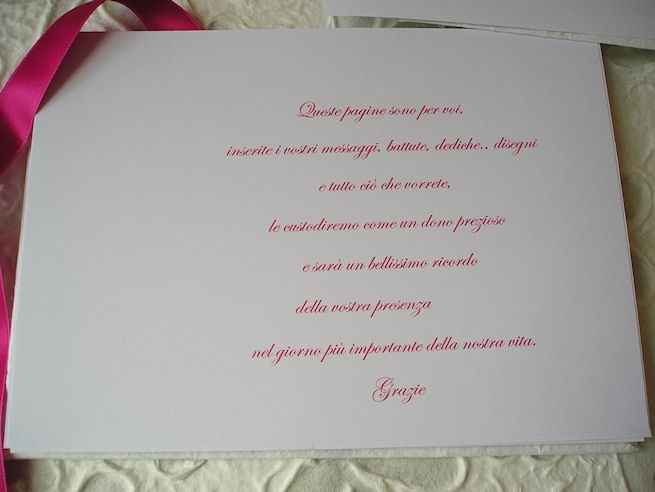 Queste pagine sono per voi,
inserite i vostri messaggi, battute, dediche.. disegni
e tutto ciò che vorrete,
le custodiremo come un dono prezioso
e sarà un bellissimo ricordo
della vostra presenza
nel giorno più importante della nostra vita.
Grazie